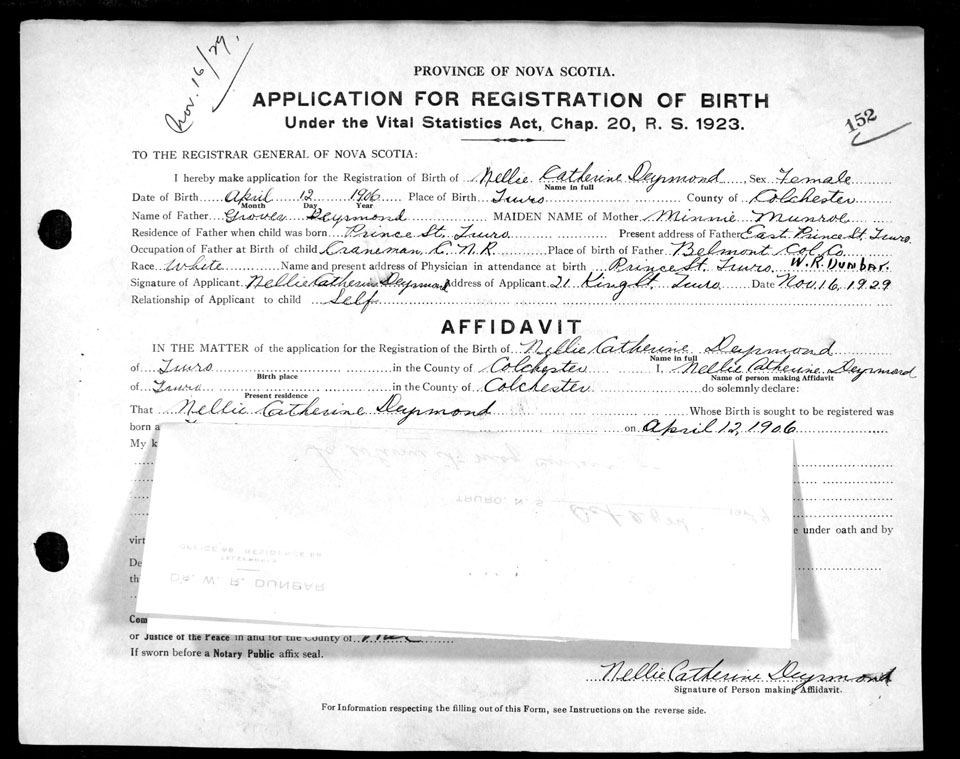 Nov. 16/29.
PROVINCE OF NOVA SCOTIA.
APPLICATION FOR REGISTRATION OF BIRTH
Under the Vital Statistics Act, Chap. 20, R. S. 1923.
152
TO THE REGISTRAR GENERAL OF NOVA SCOTIA:
I hereby make application for the Registration of Birth of Nellie Catherine Deyrmond Sex Female
Name in full
Date of Birth April 12 1906 Place of Birth Truro County of Colchester
Month Day Year
Name of Father Grover Deyrmond MAIDEN NAME of Mother Minnie Munroe
Residence of Father when child was born Prince St. Truro Present address of Father East Prince St. Truro.
Occupation of Father at Birth of child Craneman C. N. R. Place of birth of Father Belmont Col. Co.
Race White Name and present address of Physician in attendance at birth Prince St. Truro. W. R. Dunbar.
Signature of Applicant Nellie Catherine Deyrmond Address of Applicant 21 King St. Truro Date Nov. 16, 1929
Relationship of Applicant to child Self
AFFIDAVIT
IN THE MATTER of the application for the Registration of the Birth of Nellie Catherine Deyrmond
Name in full
of Truro in the County of Colchester I, Nellie Catherine Deyrmond
Birth place Name of person making Affidavit
of Truro in the County of Colchester do solemnly declare:
Present residence
That Nellie Catherine Deyrmond Whose Birth is sought to be registered was
born a on April 12, 1906
My k
e under oath and by
virt
De
th
TRURO, N. S.
OFFICE AND RESIDENCE
TELEPHONE
DR. W. R. DUNBAR
Com
or Justice of the Peace in and for the County of
If sworn before a Notary Public affix seal.
Nellie Catherine Deyrmond
Signature of Person making Affidavit.
For Information respecting the filling out of this Form, see Instructions on the reverse side.